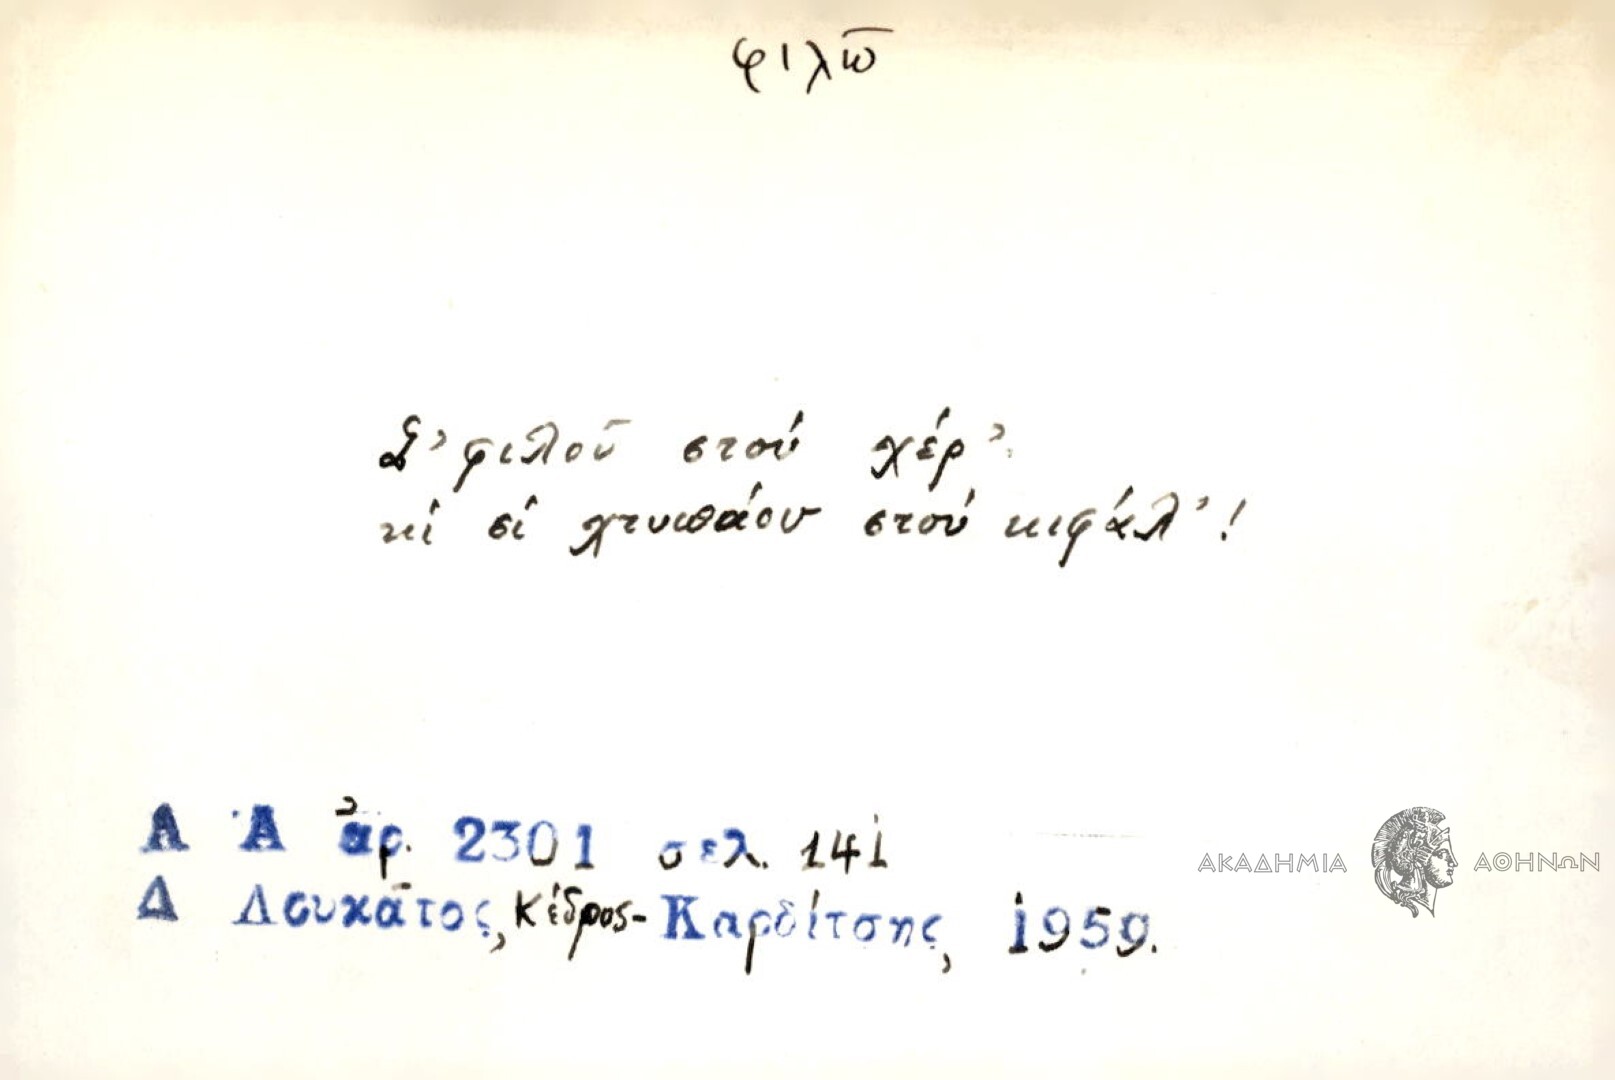 φιλῶ
Σ' φιλοῦ στού χέρ'
κί σί χτυπάου στού κιφάλ'!
Λ Α ἀρ. 2301 σελ. 141
Δ Λουκᾶτος, Κέδρος-Καρδίτσης, 1959.
ΑΚΑΔΗΜΙΑ ΑΘΗΝΩΝ